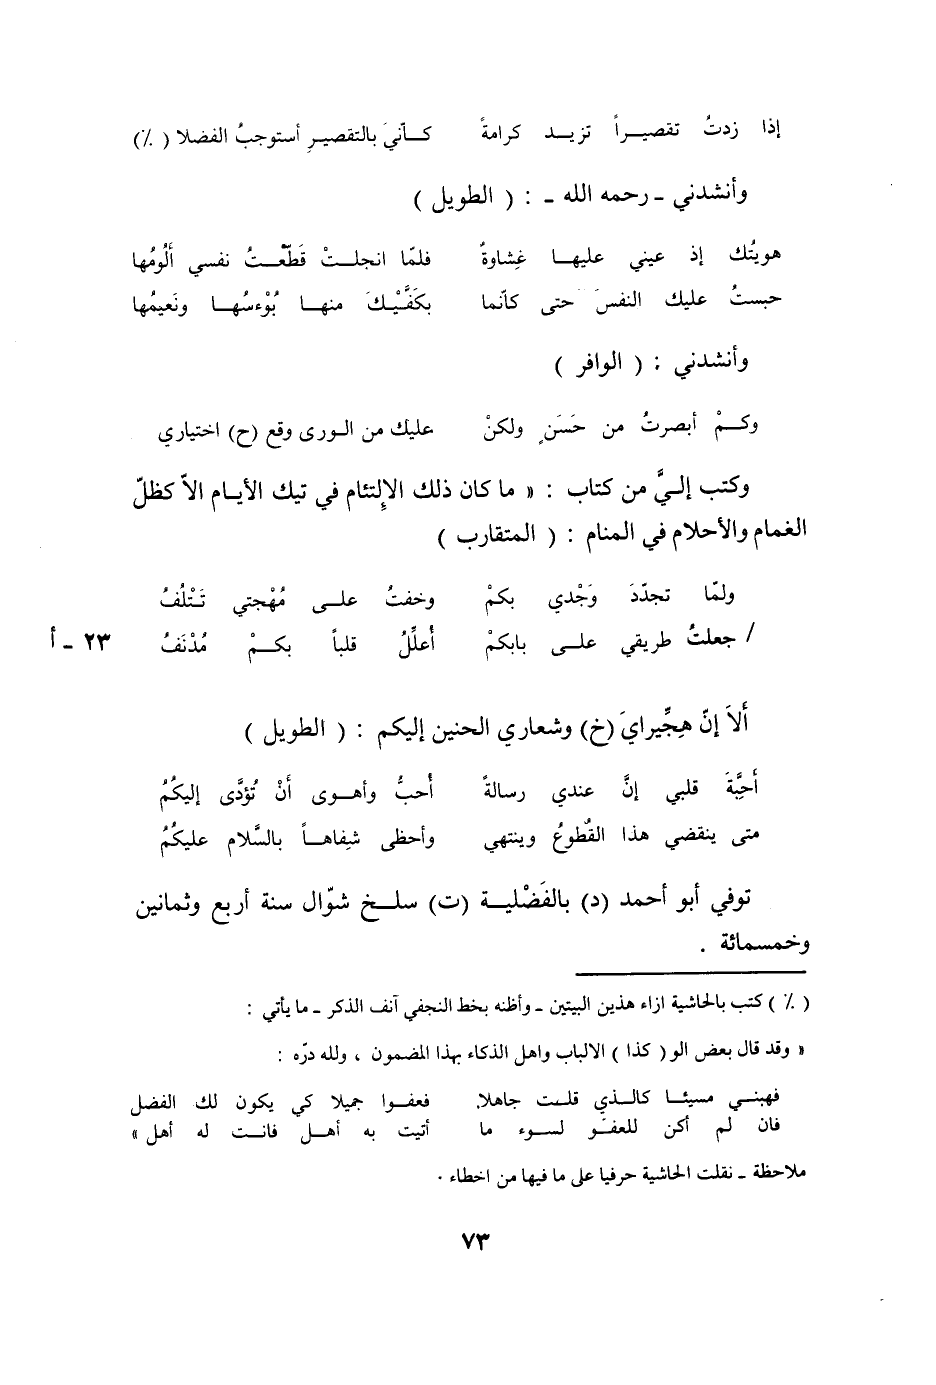 إذا زدتُ تقصيراً تزيد كرامةً كأنّيَ بالتقصيرِ أستوجبُ الفضلا ( ٪ )
وأنشدني ـ رحمه الله ـ : ( الطويل )
هويتُك إذ عيني عليها غِشاوةٌ فلمّا انجلتْ قَطّعتُ نفسي أَلُومُها
حبستُ عليك النفسَ حتى كأنما بكفَّيْكَ منها بُؤسُها ونَعيمُها
وأنشدني : ( الوافر )
وكمْ أبصرتُ من حَسَنٍ ولكنْ عليك من الورى وقع (ح) اختياري
وكتب إليَّ من كتاب : « ما كان ذلك الإلتئام في تيك الأيام الاّ كظلّ
الغمام والأحلام في المنام : ( المتقارب )
ولمّا تجدّدَ وَجْدي بكمْ وخفتُ على مُهْجتي تَتْلُفُ
/ جعلتُ طريقي على بابكمْ أُعلِّلُ قلباً بكمْ مُدْنَفُ ٢٣ ـ أ
ألاَ إنّ هِجِّيرايَ (خ) وشعاري الحنين إليكم : ( الطويل )
أحِبَّةَ قلبي إنَّ عندي رسالةً أُحبُّ وأهوى أنْ تُؤدَّى إليكُمُ
متى ينقضي هذا القُطوعُ وينتهي وأحظى شِفاهاً بالسَّلام عليكُمُ
توفي أبو أحمد (د) بالفَضْلية (ت) سلخ شوّال سنة أربع وثمانين
وخمسمائة .
( ٪ ) كتب بالحاشية ازاء هذين البيتين ـ وأظنه بخط النجفي آنف الذكر ـ ما يأتي :
« وقد قال بعض الو( كذا ) الالباب واهل الذكاء بهذا المضمون ، ولله درّه :
فهبني مسيئا كالذي قلت جاهلا. فعفوا جميلا كي يكون لك الفضل
فان لم أكن للعفو لسوء ما أتيت به أهل فانت له أهل »
ملاحظة ـ نقلت الحاشية حرفيا على ما فيها من اخطاء ٠
٧٣